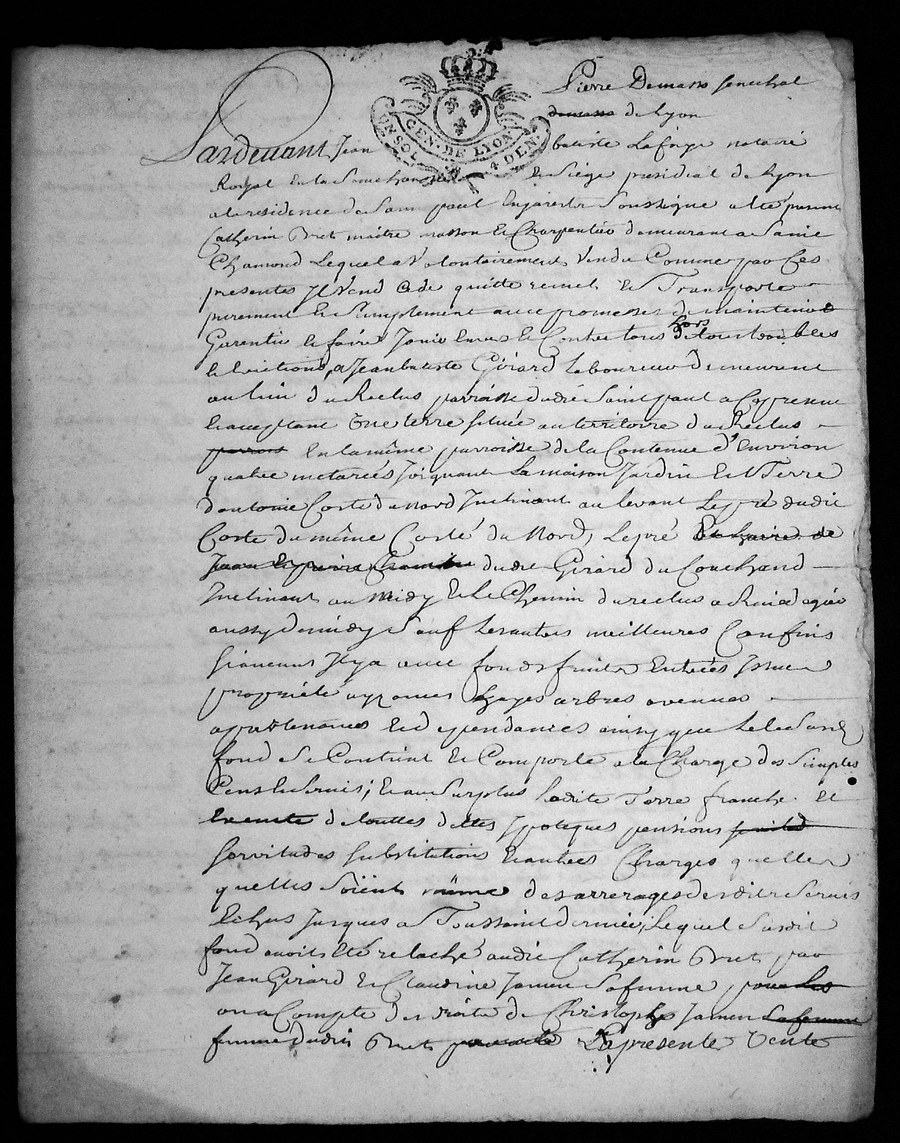 Pierre Demars senechal
demars de Lyon
GEN. DE LYON
UN SOL 4 DEN
Pardevant Jean baptiste Laforge notaire
Royal En la Senechaussée Et Siége presidial de Lyon
a la residence de Saint paul Enjarest Soussigné a Eté present
Catherin Bret maitre masson Et Charpentier demeurant a Saint
Chamond Lequel a Volontairement Vendu Comme par Ces
presentes Il Vend Cede quitte remet Et Transporte
purement Et Simplement avec promesses de maintenir
Garentir Et faire Jouir Envers Et Contre tous hors de tous troubles
Et Evictions, a Jean batiste Gérard Laboureur Demeurant
au lieu du Reclus parroisse dudit Saint paul a Ce present
Et acceptant Une terre située au territoire du Reclus
En la même parroisse de la Contenue d'Environ
quatre metarées Joignant La maison Jardin Et Terre
d'antoine Coste de Nord Inclinant au levant Le pré dudit
Coste du même Costé du Nord, Le pré
Jean dudit Girard du Couchand
Inclinant au Midy Et Le Chemin du reclus a
aussy de midy Sauf Les autres meilleures Confins
Si aucuns Il y a avec fonds fruits Entrées Issues
propriété aysances hayes arbres avenues
appartenances Et dependances ainsy que Le Susdit
fond Se Contient Et Comporte a la Charge des Simples
Cens Et Servis; Et au Surplus Ladite Terre franche Et
Exempte de touttes dettes Ypoteques pensions
servitudes substitutions Et autres Charges quelles
quelles Soient même des arrerages desdits Servis
Echus Jusques a Toussaint dernier; Lequel Susdit
fond avoit Eté relaché audit Catherin Bret par
Jean Girard Et Claudine Jamen Sa femme, pour Les
on a Compte des droits de Christophe Jamen La femme
femme dudit Bret La presente Vente